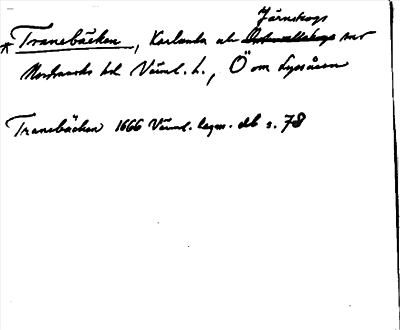 Järnskogs
* Tranebäcken, Karlanda och Östervallskogs snr
Nordmarks hd Värml. l., Ö om Lyssåsen
Tranebäcken 1666 Värml. lagm. db s. 78